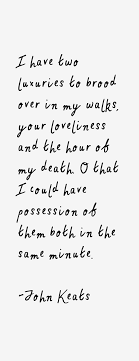 I have two
luxuries to brood
over in my walks,
your loveliness
and the hour of
my death. O that
I could have
possession of
them both in the
same minute.
-John Keats